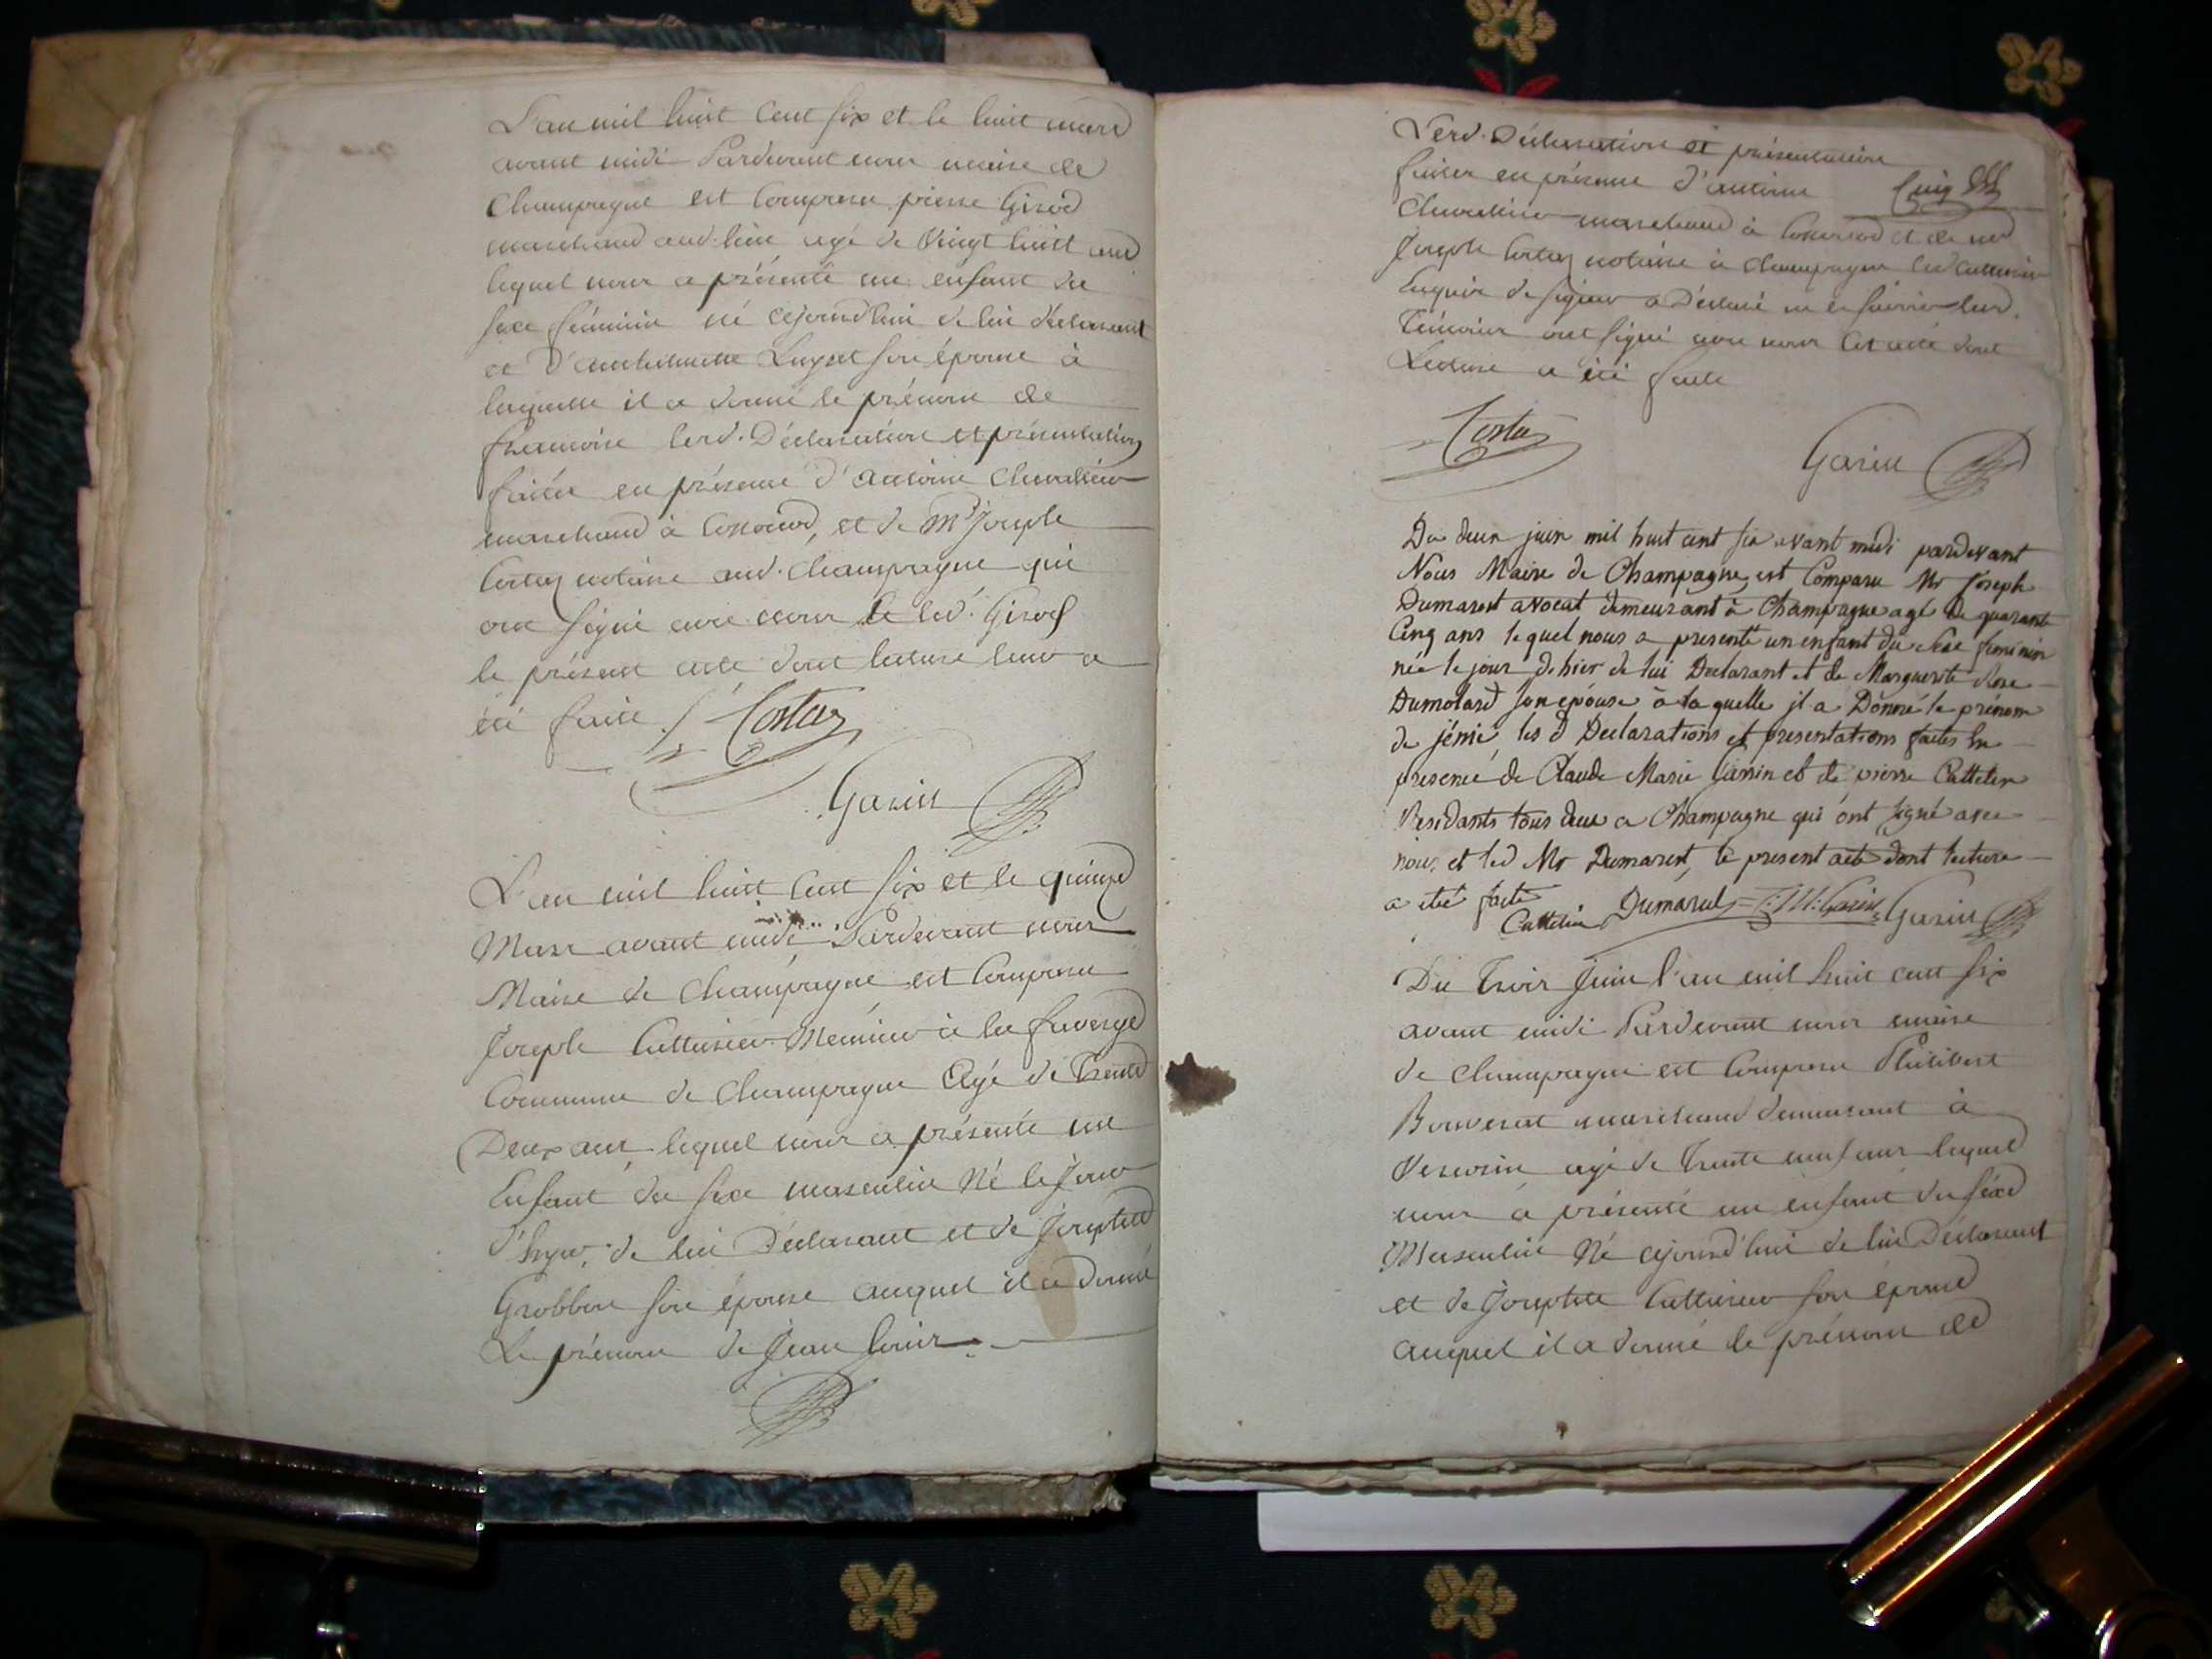 L'an mil huit cent six et le huit mars
avant midi Pardevant nous maire de
Champagne est Comparu pierre Girod
marchand aud. lieu agé de Vingt huit ans
lequel nous a présenté un enfant du
sexe féminin né cejourd'hui de lui déclarant
et D'anthelmette Luquet son épouse à
laquelle il a donné le prénom de
françoise lesd. Déclaration et présentation
faites en présence d'antoine Chevallier
marchand à, et de Mr Joseph
Costaz notaire aud. Champagne qui
ont signé avec nous le led. Girod
le présent acte dont lecture leur a
été faite / Costaz
Garin
L'an mil huit cent six et le quinze
Mars avant midi Pardevant nous
Maire de Champagne est Comparu
Joseph Cuttusier Meunier à la faverge
Commune de Champagne Agé de Trente
Deux ans lequel nous a présenté un
Enfant du sexe masculin Né le Jour
d'hyer, de lui Déclarant et de Josephte
Grobbon son épouse auquel il a donné
Le prénom de Jean louis
Lesd. Déclaration et présentation
faites en présence d'antoine
Chevallier marchand à et de md
Joseph Costaz notaire à champagne led
Enquis de signer a Déclaré ne le savoir lesd.
Témoins ont signé avec nous Cet acte dont
Lecture a été faite
Costaz
Garin
Du deux juin mil huit cent six avant midi pardevant
Nous Maire de Champagne, est Comparu Mr Joseph
Dumarest avocat demeurant à Champagne agé de quarante
Cinq ans lequel nous a presenté un enfant du sexe feminin
née le jour de hier de lui Declarant et de Marguerite Rose
Dumolard son epouse à laquelle il a Donné le prénom
de jénie, les d Declarations et presentations faites En
presence de Claude Marie Garin et de pierre Cattelin
Residants tous deux a Champagne qui ont signé avec
nous et led Mr Dumarest, le present acte dont lecture
a eté faite
Cattelin Dumarest C: M: Garin Garin
Du Trois Juin l'an mil huit cent six
avant midi Pardevant nous maire
de Champagne est Comparu Philibert
Bouverat marchand demeurant à
agé de Trente neuf ans lequel
nous a présenté un enfant du sexe
Masculin Né cejourd'hui de lui Déclarant
et de Josephte Cuttusier son épouse
auquel il a donné le prénom de